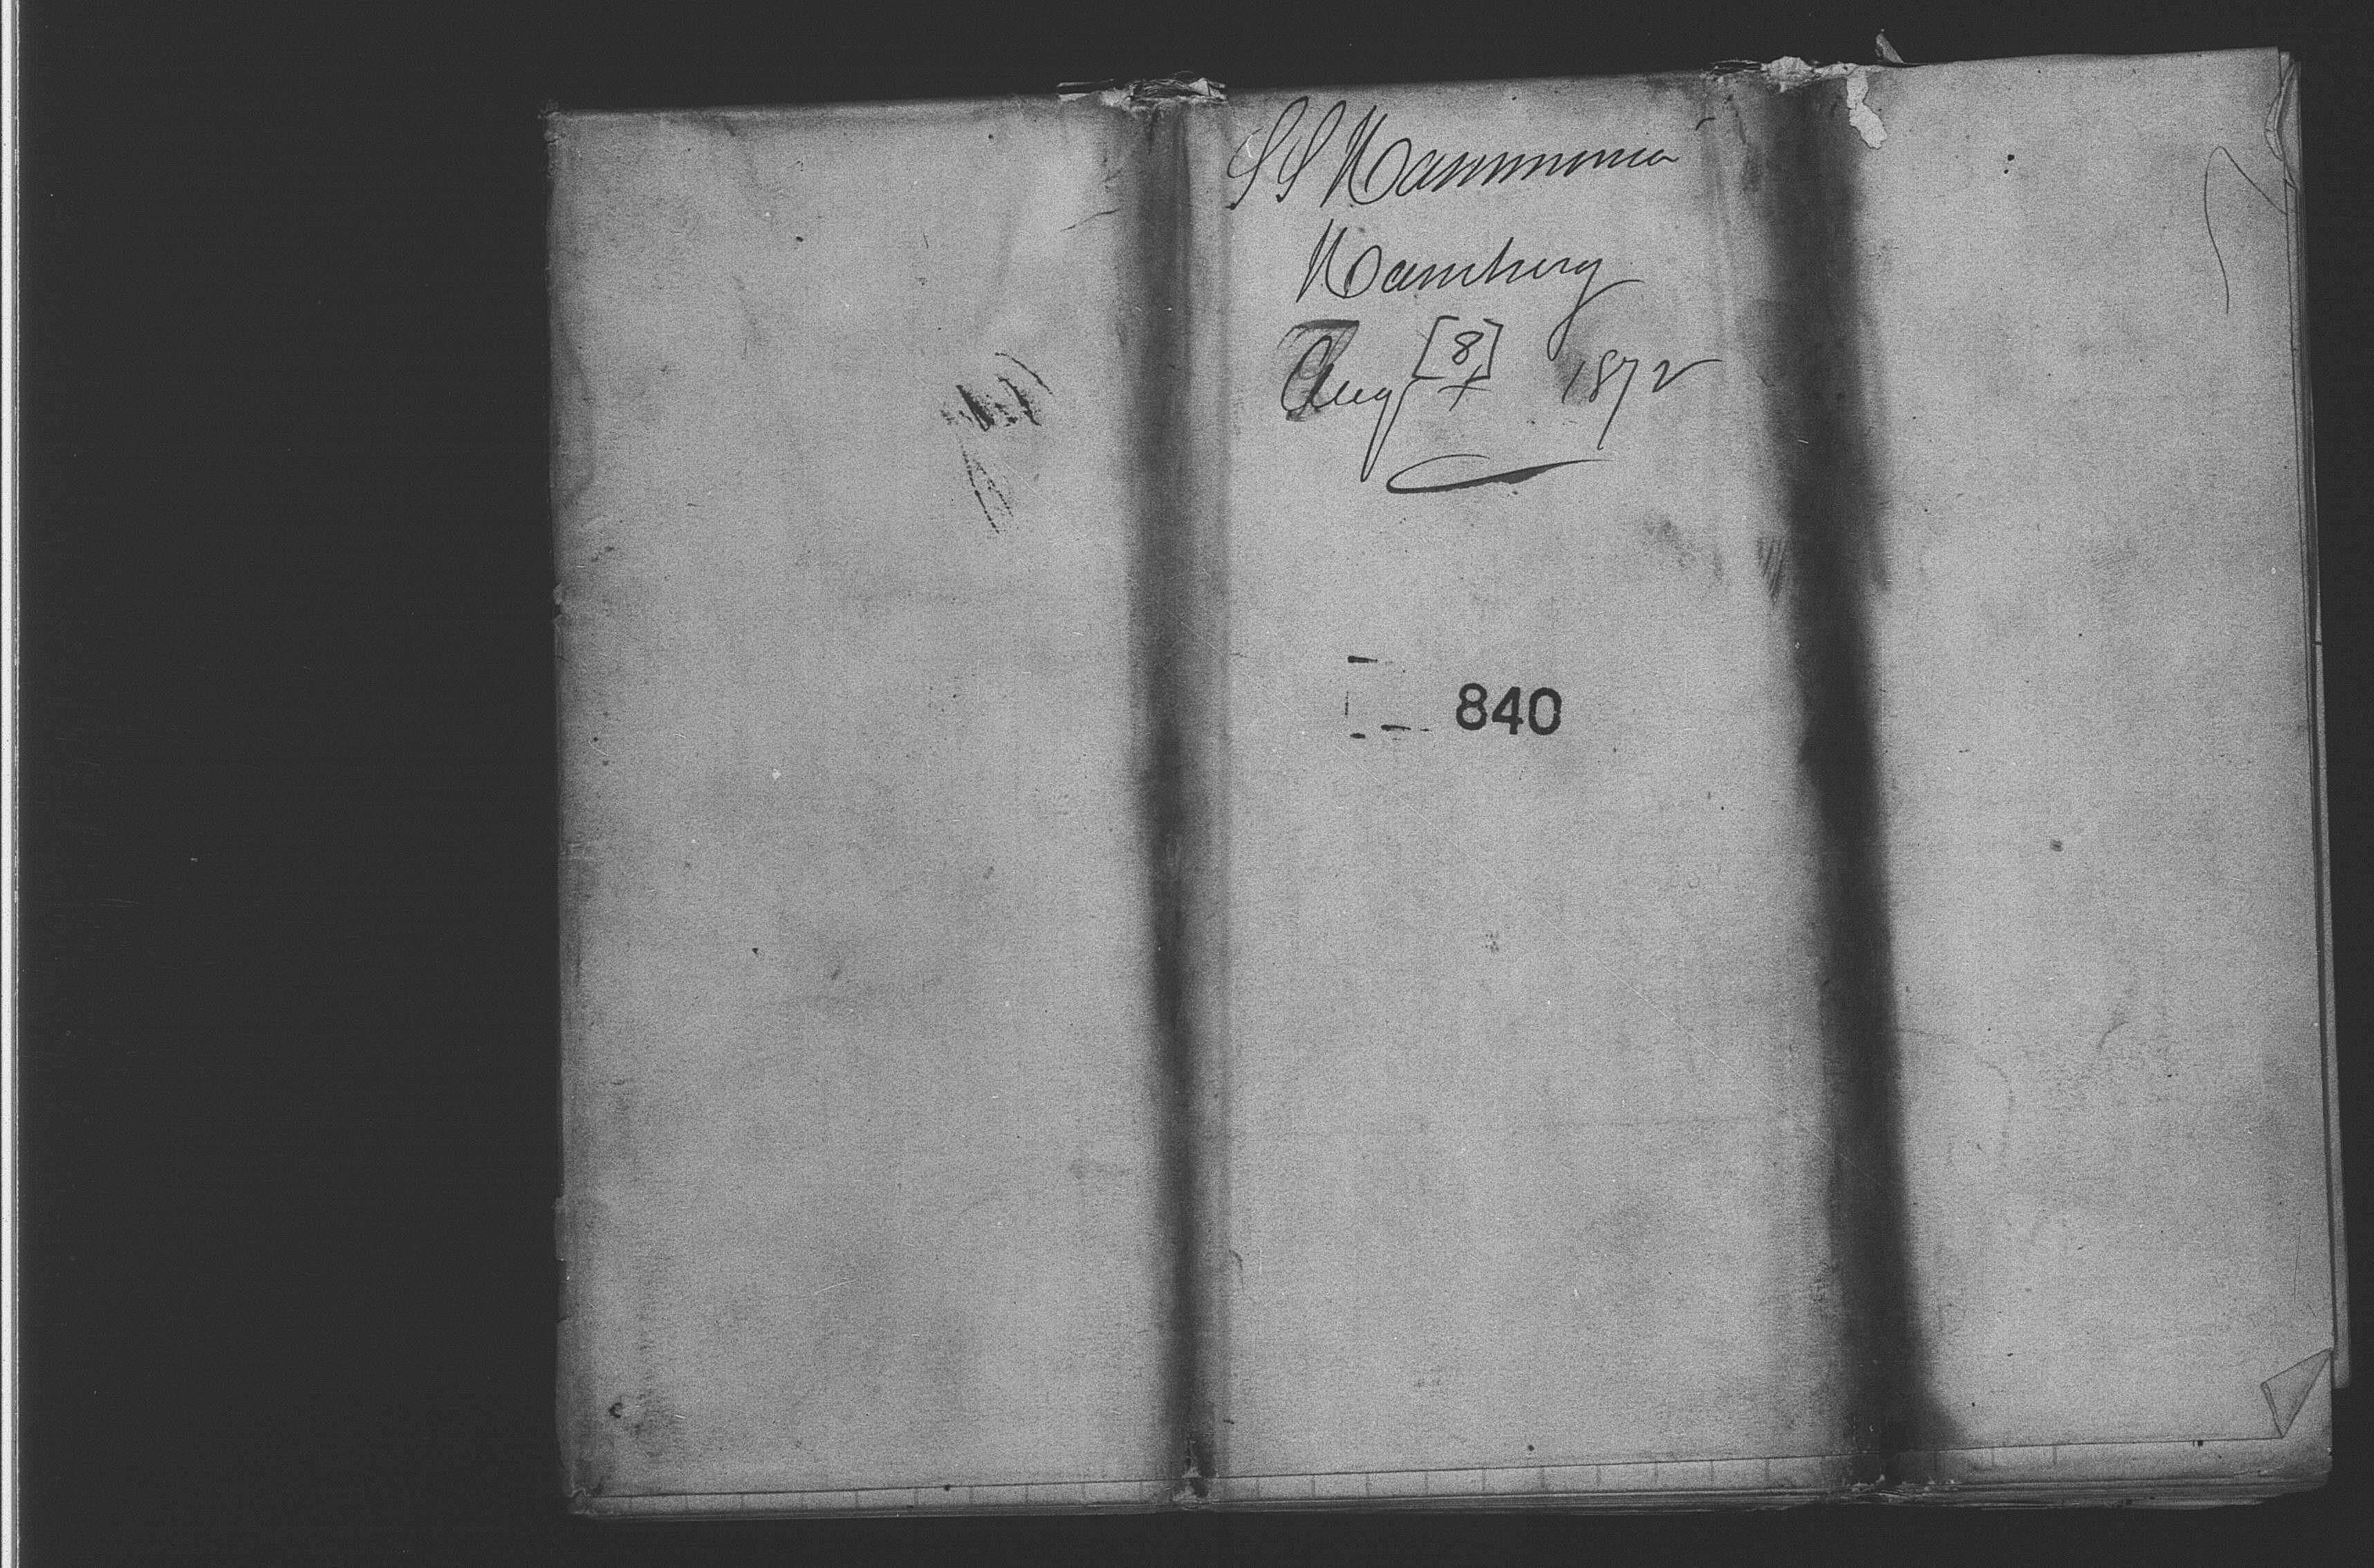 SS Hammonia
Hamburg
[8]
Aug + 1872
840